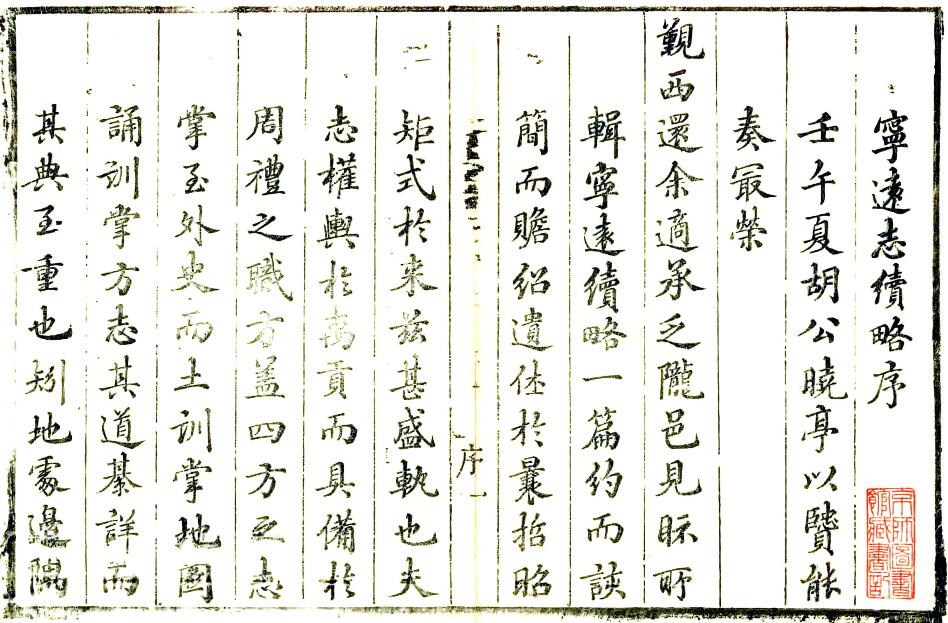 寧遠志續略序
壬午夏胡公曉亭以贒能
奏冣榮
覲西還余適承乏隴邑見眎所
輯寧遠續略一篇約而該
簡而贍紹遺於曩哲昭
序
一
矩式於來茲甚盛軌也夫
志權輿於禹貢而具備於
周禮之職方盖四方之志
掌至外史而土訓掌地圖
誦訓掌方志其道綦詳而
其典至重也矧地處邊隅
京師圖書
館藏書記